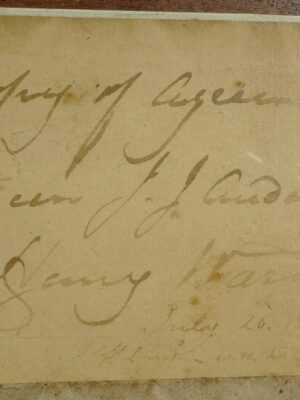 opy of Agreem
een J. J. Audu
Henry War
July 26. 1